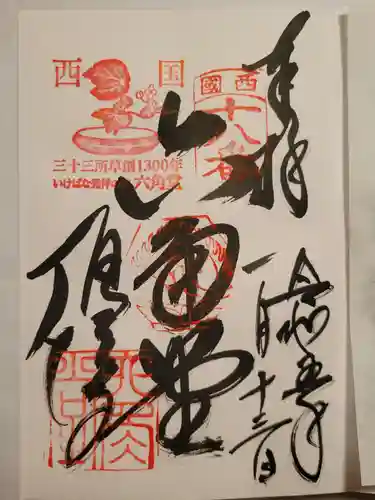 奉拝
令和五年
一月十三日
西國
十八番
六角堂
頂法寺
西国
三十三所草創1300年
いけばな発祥の 六角堂